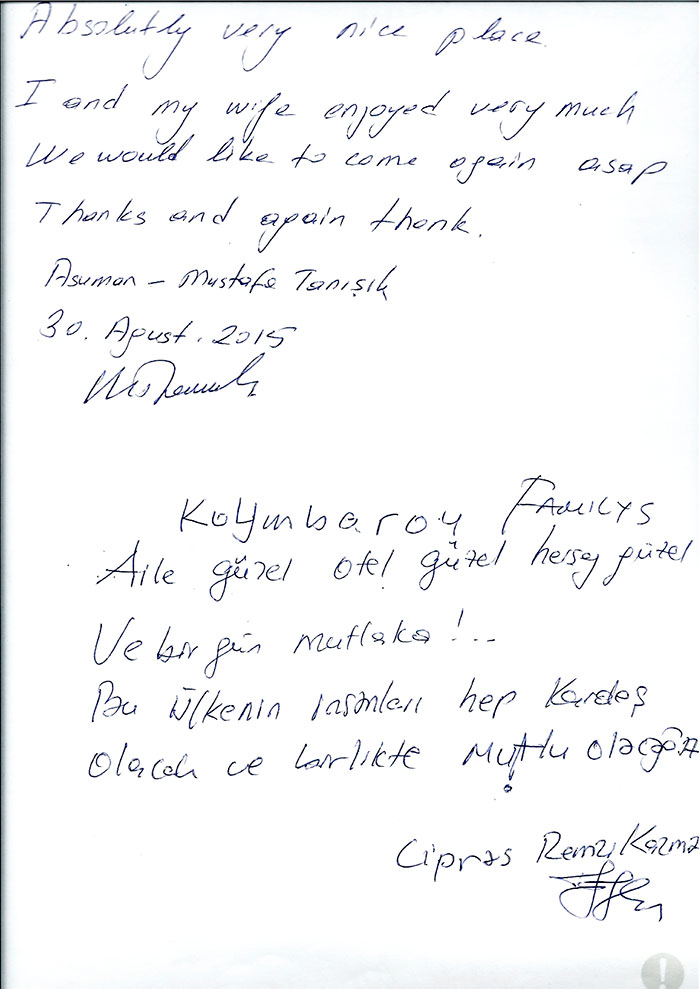 Absolutly very nice place.
I and my wife enjoyed very much
We would like to come again asap
Thanks and again thank.
Asuman - Mustafa Tanışık
30. Agust. 2015
Koymbaroy FAMILYS
Aile güzel otel güzel herşey güzel
Ve bir gün mutlaka!...
Bu ülkenin insanları hep Kardeş
Olacak ve birlikte Mutlu olacağız
Cipras Remzi Kazma